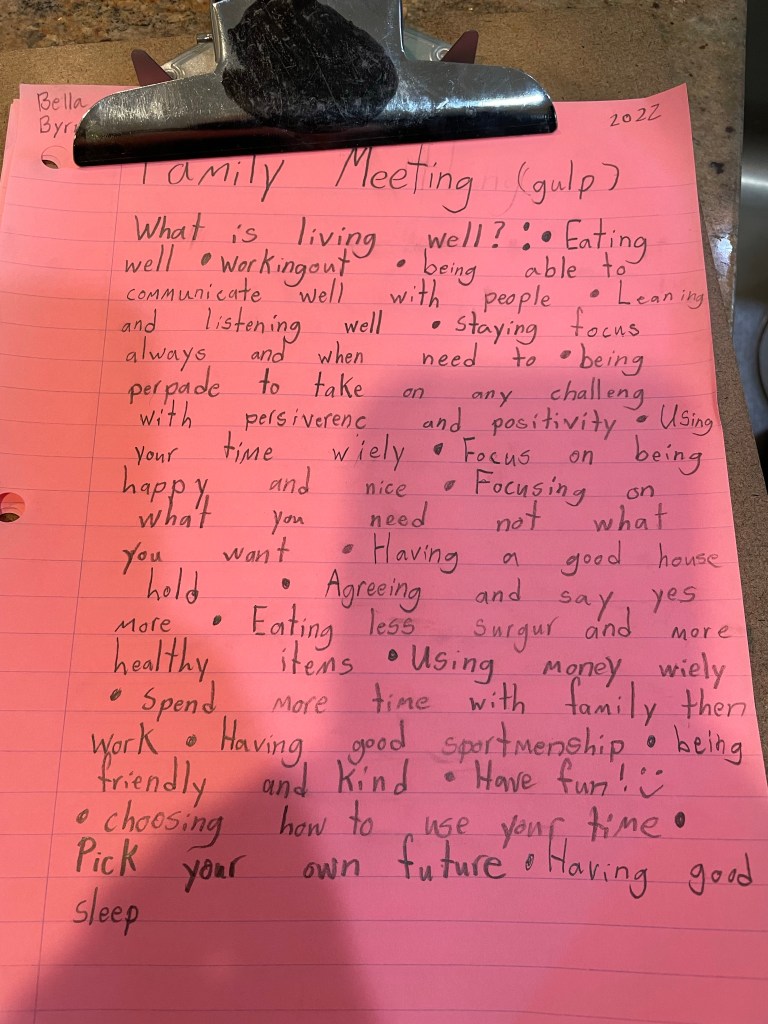 Bella
2022
Family Meeting (gulp)
What is living well?: • Eating
well • workingout • being able to
communicate well with people • Leaning
and listening well • Staying focus
always and when need to • being
perpade to take on any challeng
with persiverenc and positivity • Using
your time wiely • Focus on being
happy and nice • Focusing on
what you need not what
you want • Having a good house
hold • Agreeing and say yes
more • Eating less surgur and more
healthy items • Using money wiely
• Spend more time with family then
work • Having good sportmenship • being
friendly and kind • Have fun! :)
• choosing how to use your time •
Pick your own future • Having good
sleep